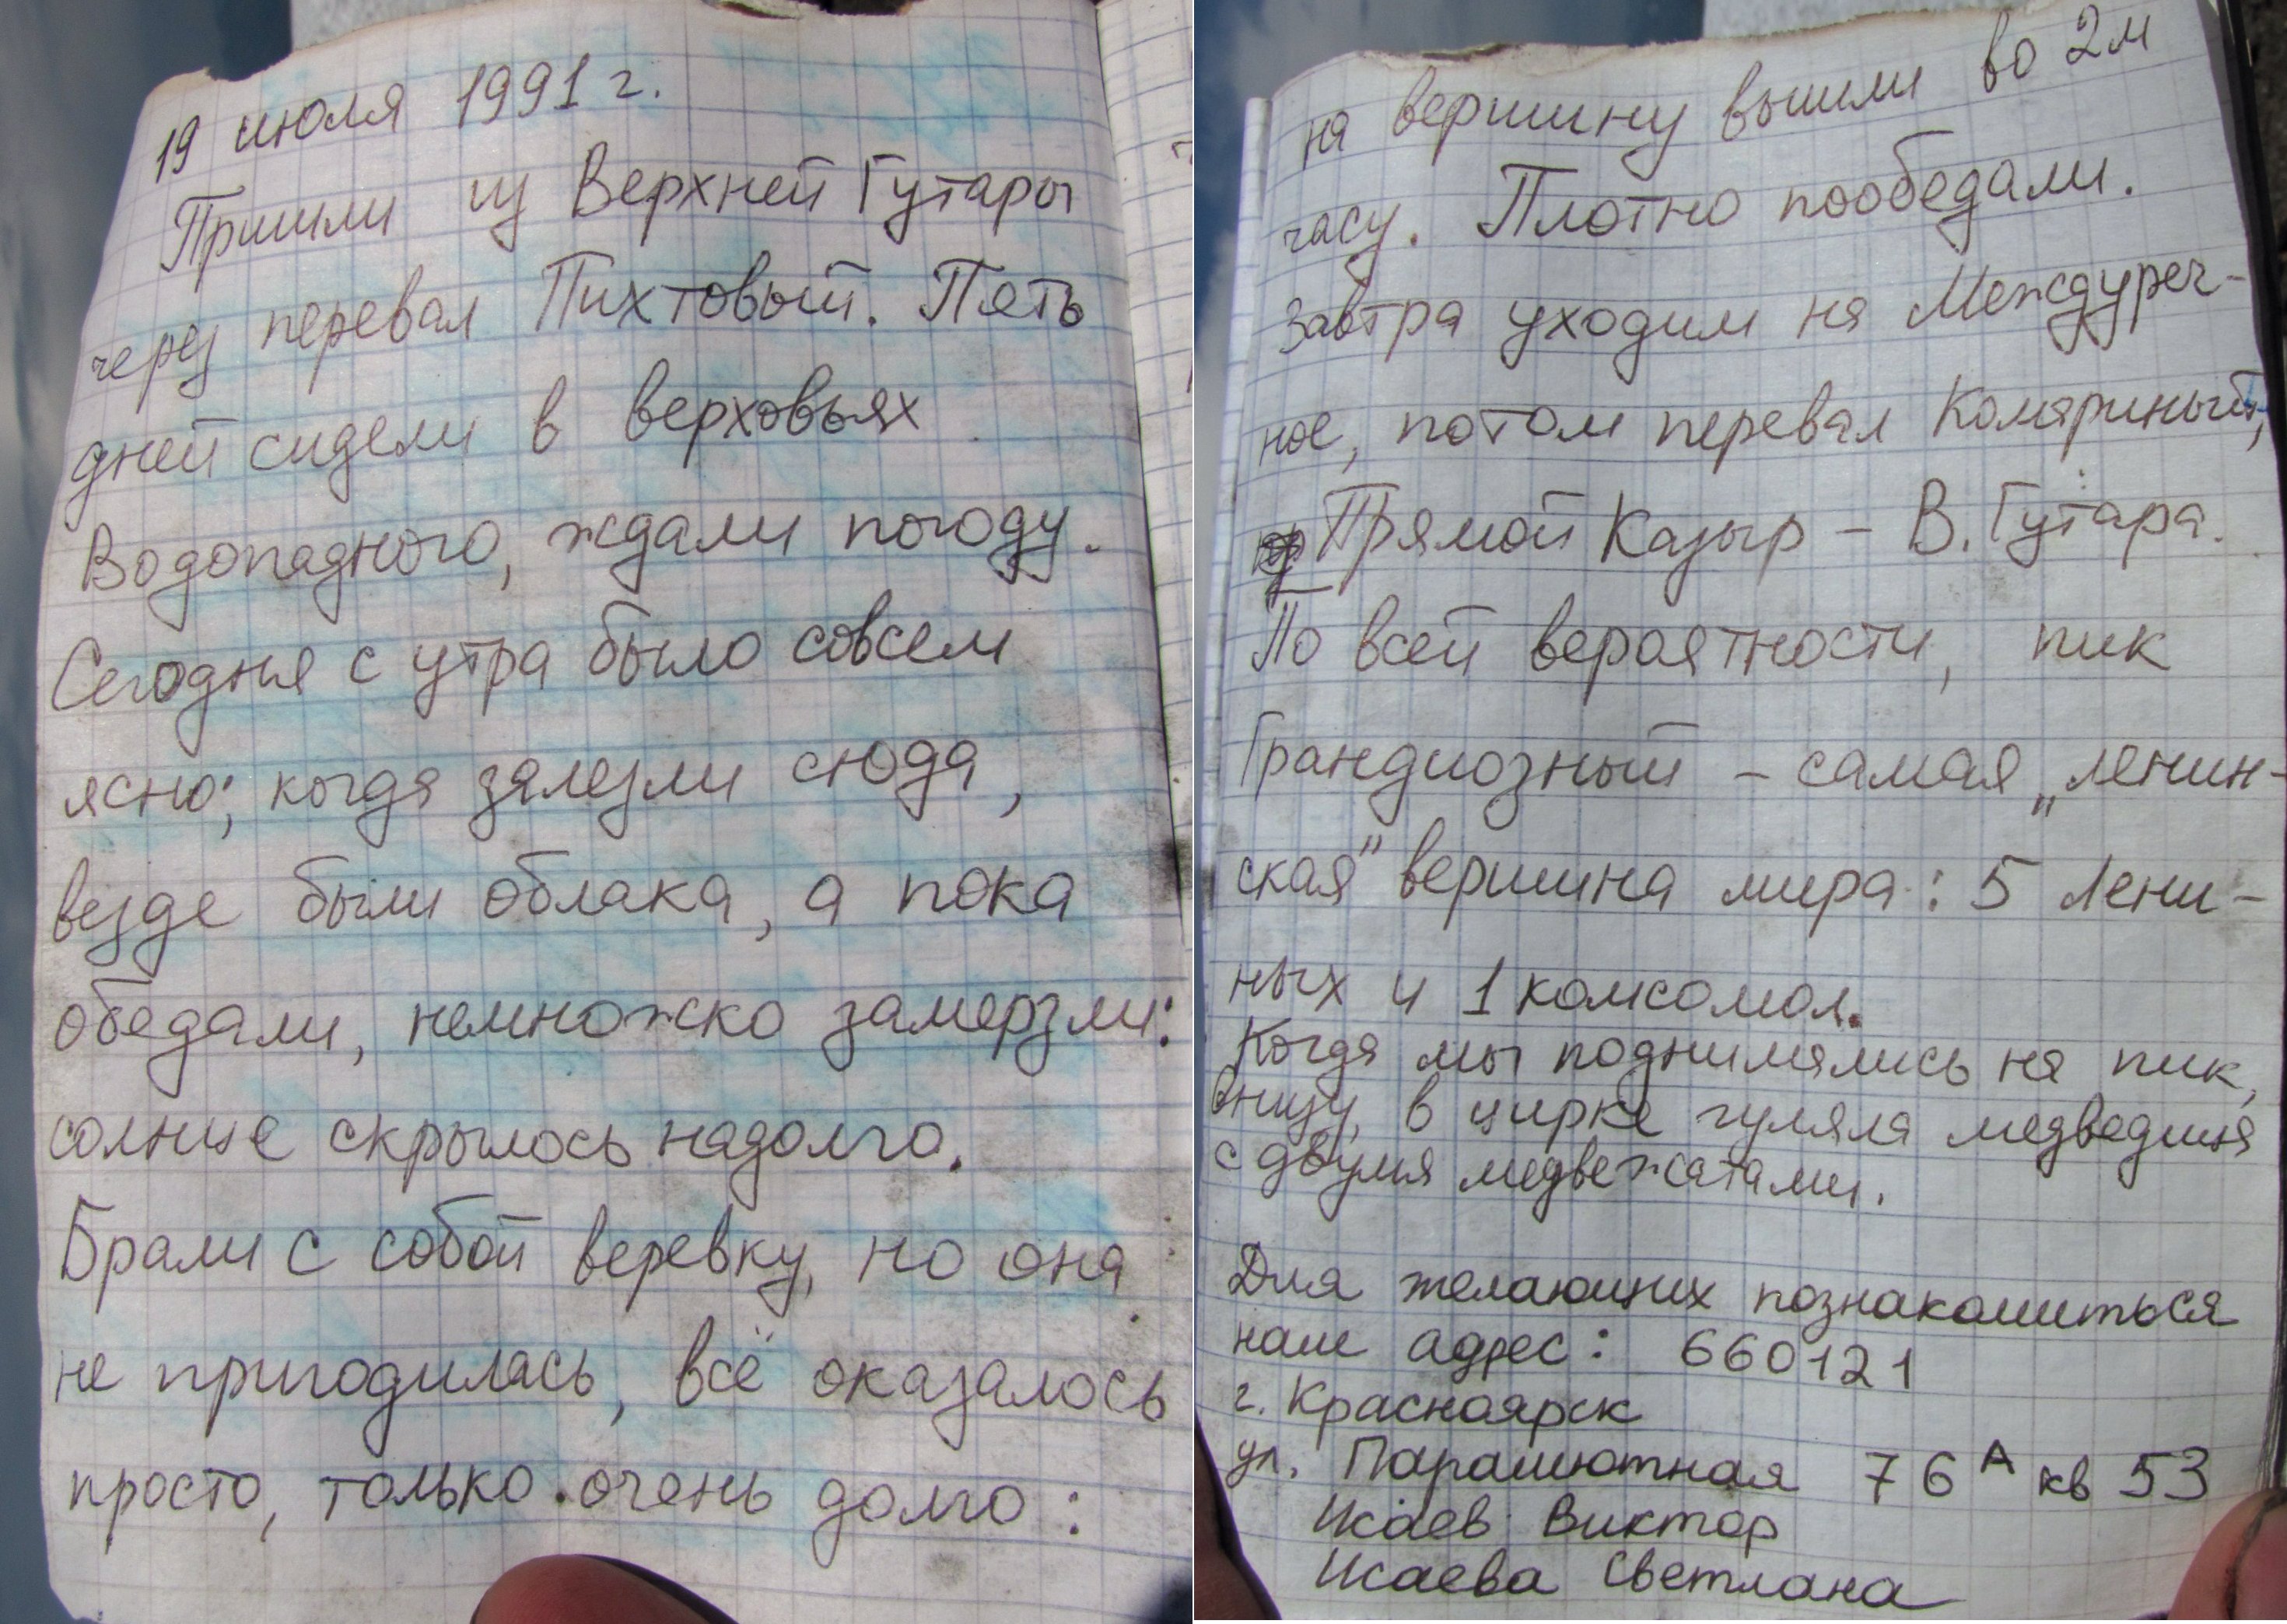 19 июля 1991 г.
Пришли из Верхней Гутары
через перевал Пихтовый. Пять
дней сидели в верховьях
Водопадного, ждали погоду.
Сегодня с утра было совсем
ясно; когда залезли сюда,
везде были облака, а пока
обедали, немножко замерзли:
солнце скрылось надолго.
Брали с собой веревку, но она
не пригодилась, всё оказалось
просто, только очень долго:
на вершину вышли во 2м
часу. Плотно пообедали.
Завтра уходим на Междуреч-
ное, потом перевал Комариный,
Прямой Казыр – В. Гутара.
По всей вероятности, пик
Грандиозный – самая „ленин-
ская" вершина мира: 5 Лени-
ных и 1 комсомол.
Когда мы поднимались на пик,
внизу, в цирке гуляла медведица
с двумя медвежатами.
Для желающих познакомиться
наш адрес: 660121
г. Красноярск
ул. Парашютная 76А кв 53
Исаев Виктор
Исаева Светлана